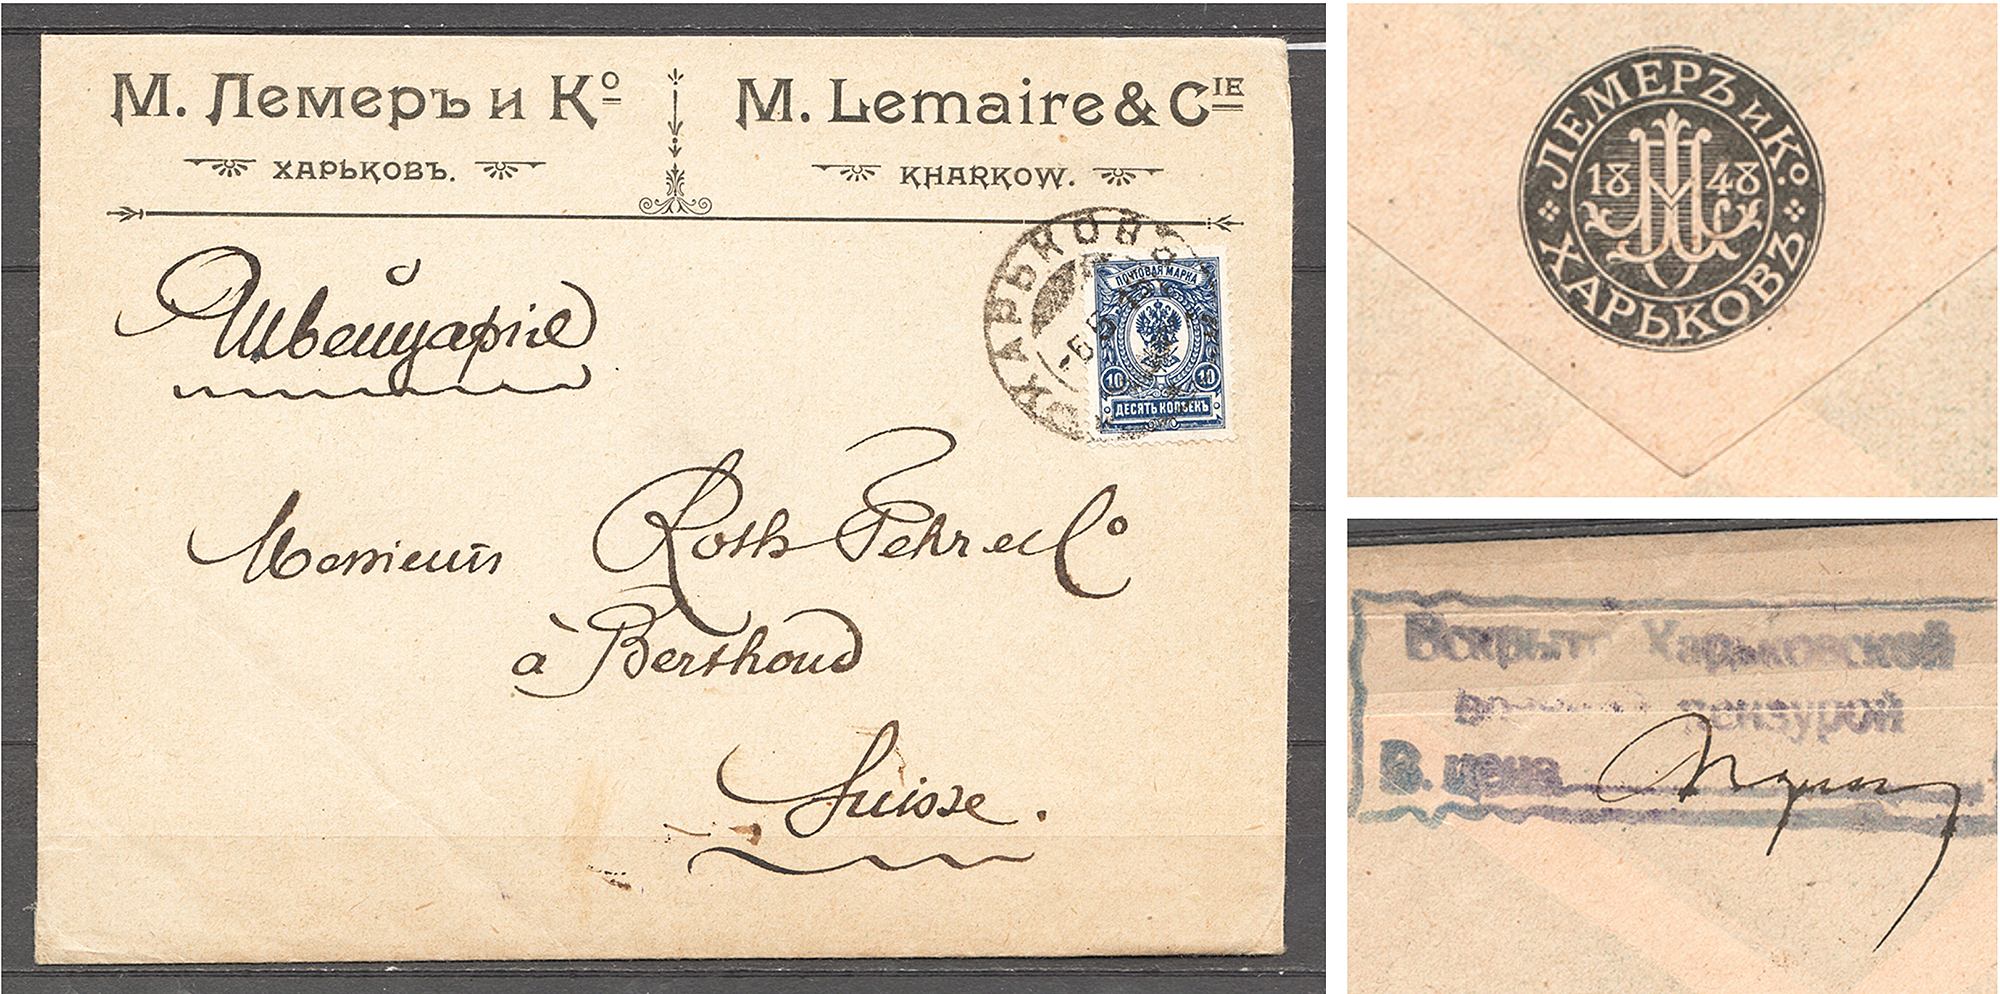 М. Лемеръ и Ко
ХАРЬКОВЪ.
M. Lemaire & CIE
KHARKOW.
ХАРЬКОВЪ
ПОЧТОВАЯ МАРКА
10 10
ДЕСЯТЬ КОПѢЕКЪ
Швейцарiе
Messieurs Roth Fehr et Co
à Berthoud
Suisse.
ЛЕМЕРЪ и Ко.
1848
ХАРЬКОВЪ
Вскрыто Харьковской
цензурой
В. цена